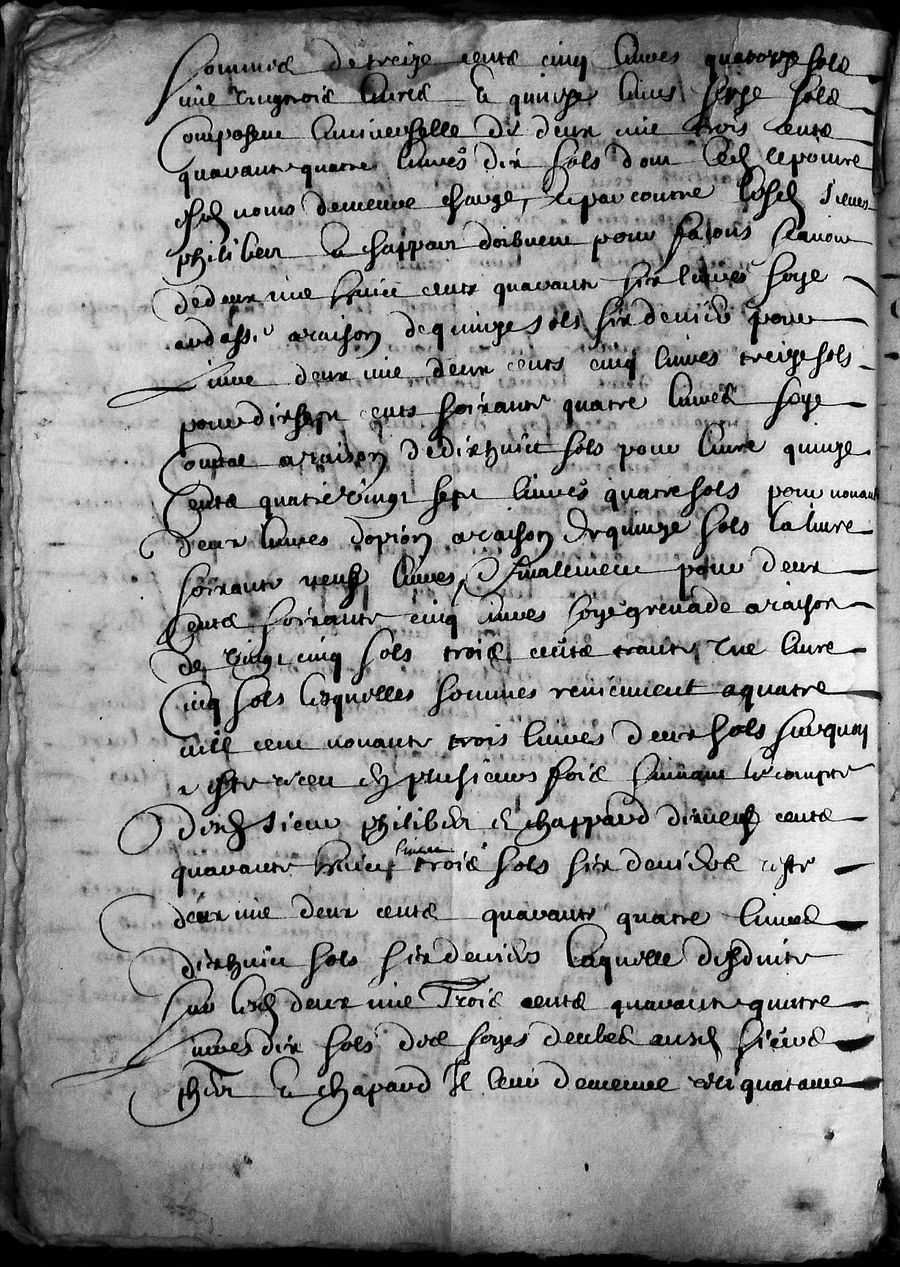 sommes de treize cents cinq livres quatorze sols
mil vingtrois livres & quinze livres seize sols
composent universelle de deux mil trois cents
quarante quatre livres dix sols dont led lepoivre
demeure charge, & par contre lesd sieurs
philiber & chappart doibvent pour scavoir
de deux mil huict cents quarante six livres soye
a raison de quinze sols six deniers pour
livre deux mil deux cents cinq livres treize sols
pour dix sept cents soixante quatre livres soye
a raison de dix huict sols pour livre quinze
cents quatre vingt sept livres quatre sols pour nonante
deux livres a raison de quinze sols la livre
soixante neuf livres, & finalement pour deux
cents soixante cinq livres soye grenade a raison
de vingt cinq sols trois cents trante une livre
cinq sols lesquelles sommes reviennent a quatre
mill cent nonante trois livres deux sols surquoy
a esté receu en plusieurs fois suivant le compte
desd sieur philiber & chappard dix neuf cents
quarante huict livres trois sols six deniers reste
deux mil deux cents quarante quatre livres
dix huict sols six deniers laquelle desduite
sur lesd deux mil Trois cents quarante quatre
livres dix sols des soyes deubes ausd sieurs
phber & chapard Il leur demeure